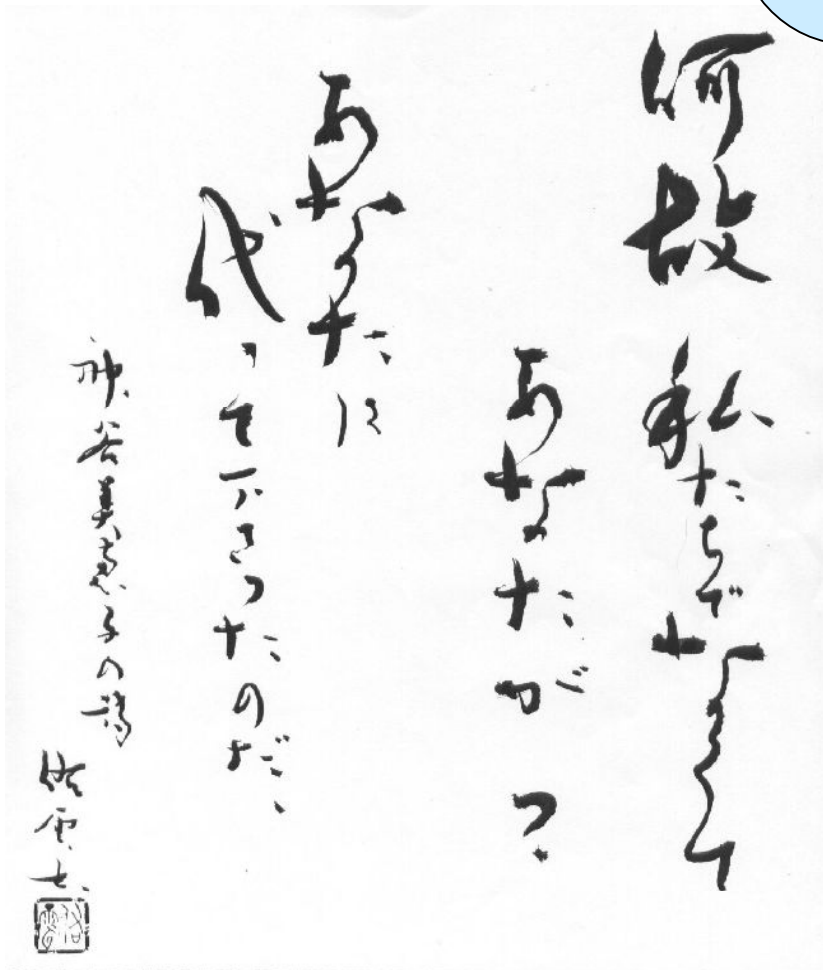 何故私たちでなくて
あなたが?
あなたは
代って下さったのだ、
神谷美恵子の詩